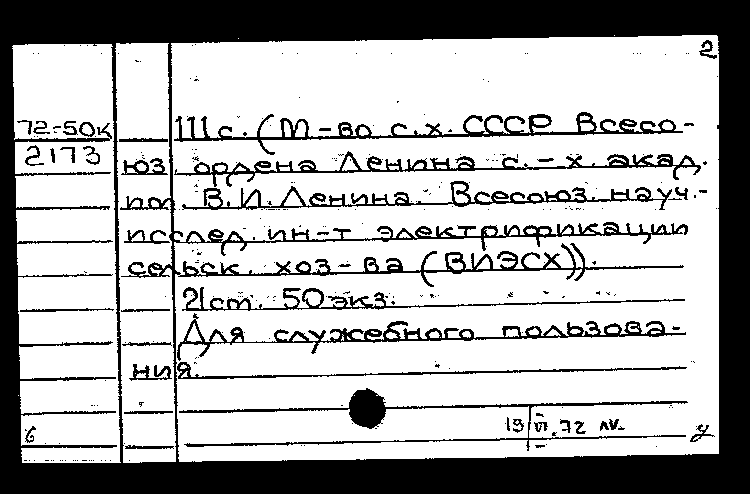 2
72-50к 111 с. (М-во с.х. СССР Всесо-
2173 юз. ордена Ленина с.-х. акад.
им. В.И.Ленина. Всесоюз. науч.-
исслед. ин-т электрификации
сельск. хоз-ва (ВИЭСХ)).
21 cm. 50 экз.
Для служебного пользова-
ния.
19/VI.72
6 у